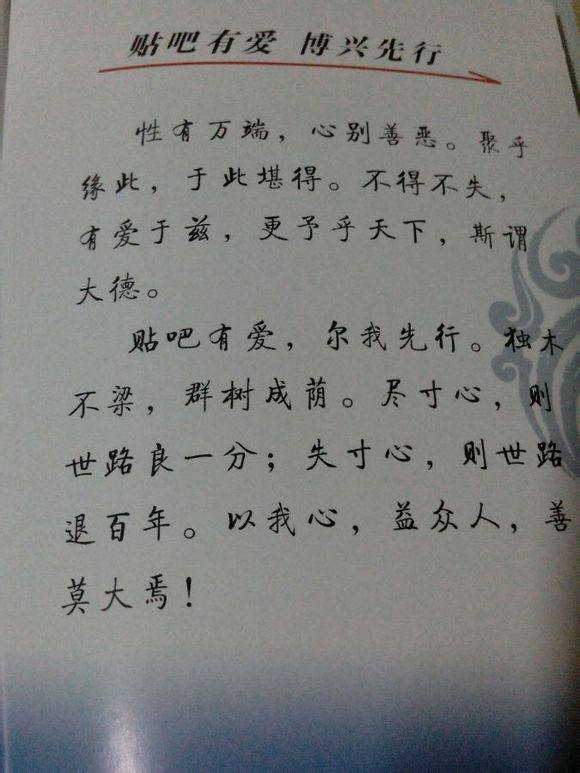 贴吧有爱 博兴先行
性有万端，心别善恶。聚乎
缘此，于此堪得。不得不失，
有爱于兹，更予乎天下，斯谓
大德。
贴吧有爱，尔我先行。独木
不梁，群树成荫。尽寸心，则
世路良一分；失寸心，则世路
退百年。以我心，益众人，善
莫大焉！